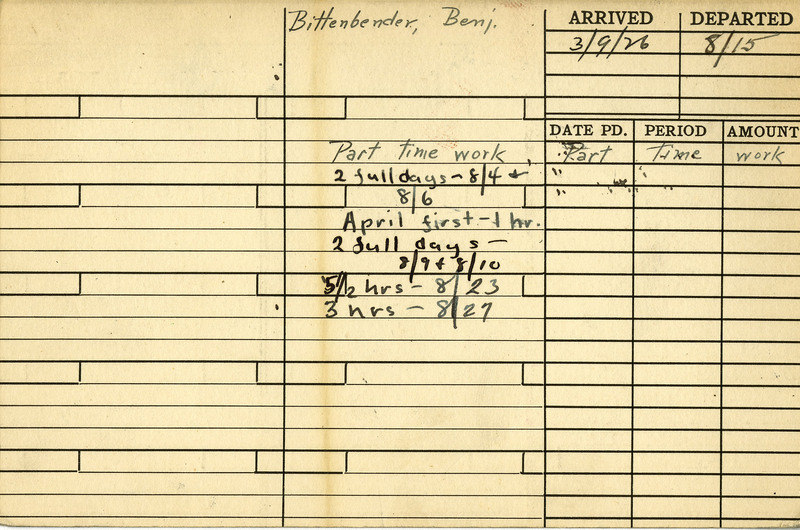 Bittenbender, Benj.
ARRIVED DEPARTED
3/9/26 8/15
DATE PD. PERIOD AMOUNT
Part Time work
" "
"
Part time work
2 full days - 8/4 +
8/6
April first - 1 hr.
2 full days -
8/9 + 8/10
5 1/2 hrs - 8/23
3 hrs - 8/27